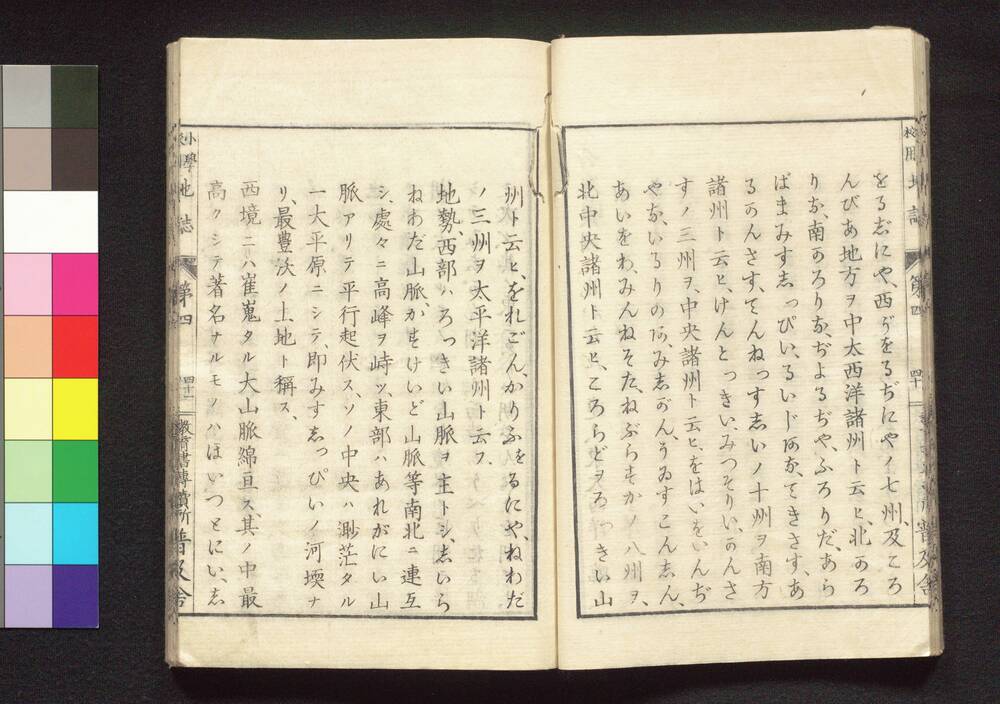 をる志にや、西ゔをるぢにやノ七州、及ころ
んびあ地方ヲ中大西洋諸州ト云ヒ、北かろ
りな、南かろりな、ぢよるぢや、ふろりだ、あら
ばまみす志っぴい、るいじあな、てきさす、あ
るかんさす、てんねっす志いノ十州ヲ南方
諸州ト云ヒ、けんとっきい、みつそりい、かんさ
すノ三州ヲ、中央諸州ト云ヒ、をはいを、いんぢ
やな、いるりのあ、み志がん、うゐすこん志ん、
あいをわ、みんねそた、ねぶらすかノ八州ヲ、
北中央諸州ト云ヒ、ころらどヲろっきい山
州ト云ヒ、をれごん、かりふをるにや、ねわだ
ノ三州ヲ太平洋諸州ト云フ、
地勢、西部ハろっきい山脈ヲ主トシ、志いら
ねわだ山脈、かすけいど山脈等南北ニ連互
シ、處々ニ高峰ヲ峙ツ、東部ハあれがにい山
脈アリテ平行起伏ス、ソノ中央ハ渺茫タル
一大平原ニシテ、即みす志っぴいノ河堧ナ
リ、最豊沃ノ土地ト稱ス、
西境ニハ崔嵬タル大山脈綿亘ス、其ノ中最
高クシテ著名ナルモノハほいつとにい、志
小學校用地誌 第四 四十一 教育書専賣所 普及舍